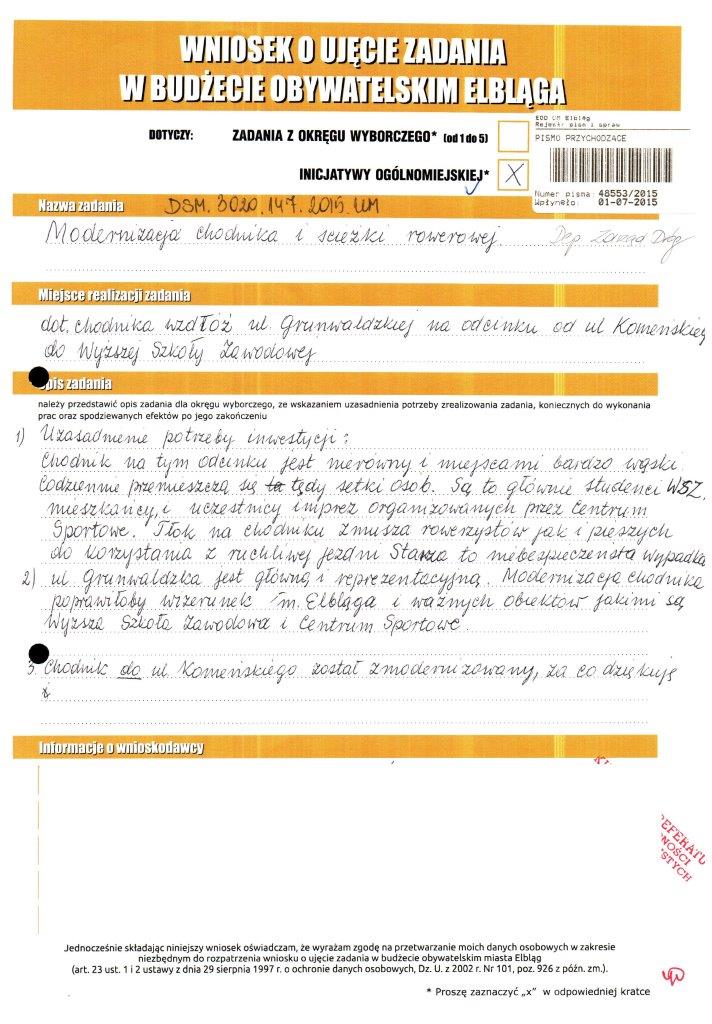 WNIOSEK O UJĘCIE ZADANIA
W BUDŻECIE OBYWATELSKIM ELBLĄGA
DOTYCZY: ZADANIA Z OKRĘGU WYBORCZEGO* (od 1 do 5)
INICJATYWY OGÓLNOMIEJSKIEJ* X
EOD UM Elbląg
Rejestr pism i spraw
PISMO PRZYCHODZĄCE
Numer pisma: 48553/2015
Wpłynęło: 01-07-2015
Nazwa zadania DSM.3020.147.2015.UM
Modernizacja chodnika i scieżki rowerowej. Dep. Zarząd Dróg
Miejsce realizacji zadania
dot. chodnika wzdłóż ul. Grunwaldzkiej na odcinku od ul Komeńskieg
do Wyższej Szkoły Zawodowej
pis zadania
należy przedstawić opis zadania dla okręgu wyborczego, ze wskazaniem uzasadnienia potrzeby zrealizowania zadania, koniecznych do wykonania
prac oraz spodziewanych efektów po jego zakończeniu
1) Uzasadnienie potrzeby inwestycji:
Chodnik na tym odcinku jest nierówny i miejscami bardzo wąski.
Codziennie przemieszczą się tędy setki osób. Są to głównie studenci WSZ,
mieszkańcy, i uczestnicy imprez organizowanych przez Centrum
Sportowe. Tłok na chodniku zmusza rowerzystów jak i pieszych
do korzystania z ruchliwej jezdni Stwarza to niebezpieczeństa wypadka
2) ul Grunwaldzka jest główną i reprezentacyjną. Modernizacja chodnika
poprawiłoby wizerunek m. Elbląga i ważnych obiektów jakimi są
Wyższa Szkoła Zawodowa i Centrum Sportowe.
3. Chodnik do ul Komeńskiego został zmodernizowany, za co dziękuję
Informacje o wnioskodawcy
REFERATU
NOŚCI
STYCH
Jednocześnie składając niniejszy wniosek oświadczam, że wyrażam zgodę na przetwarzanie moich danych osobowych w zakresie
niezbędnym do rozpatrzenia wniosku o ujęcie zadania w budżecie obywatelskim miasta Elbląg
(art. 23 ust. 1 i 2 ustawy z dnia 29 sierpnia 1997 r. o ochronie danych osobowych, Dz. U. z 2002 r. Nr 101, poz. 926 z późn. zm.).
* Proszę zaznaczyć „x" w odpowiedniej kratce